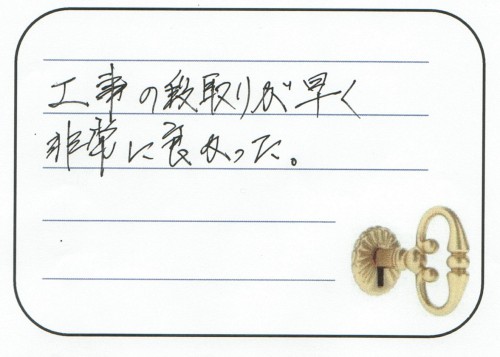 工事の段取りが早く
非常に良かった。